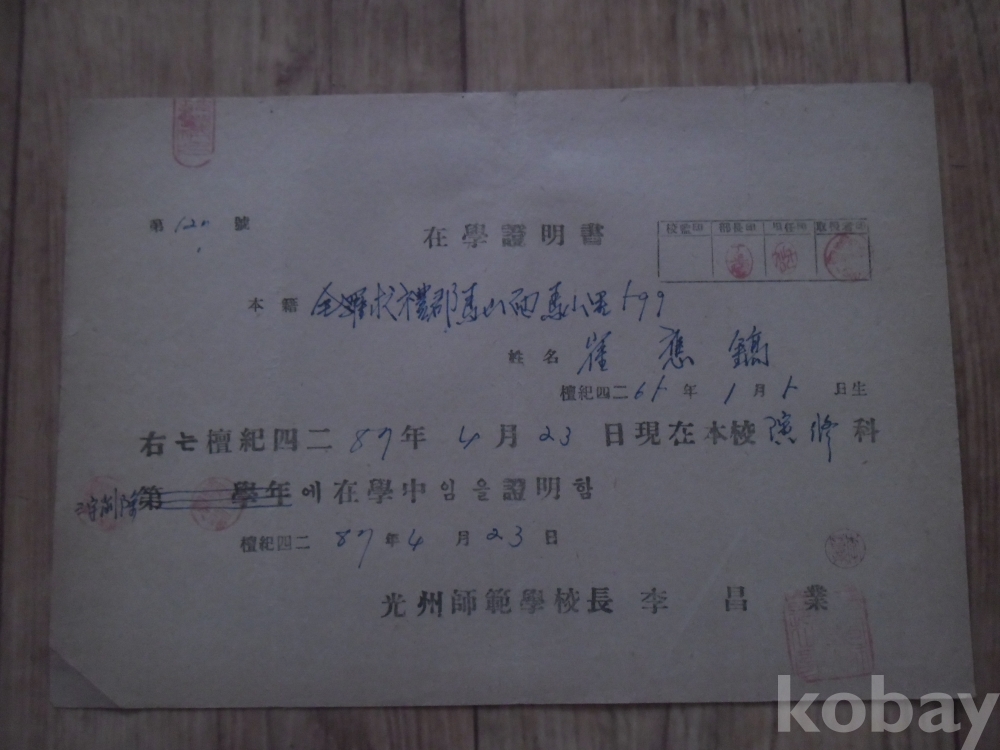 第 120 號
在學證明書
校監印 部長印 担任印 取扱者印
本籍 全羅 求禮郡馬山面馬山里 699
姓名 崔應鎬
檀紀四二65年 1月5日生
右는檀紀四二87年 4月23日現在本校 演修科
第 學年에在學中임을證明함
字削除
檀紀四二87年4月23日
光州師範學校長 李昌業
kobay